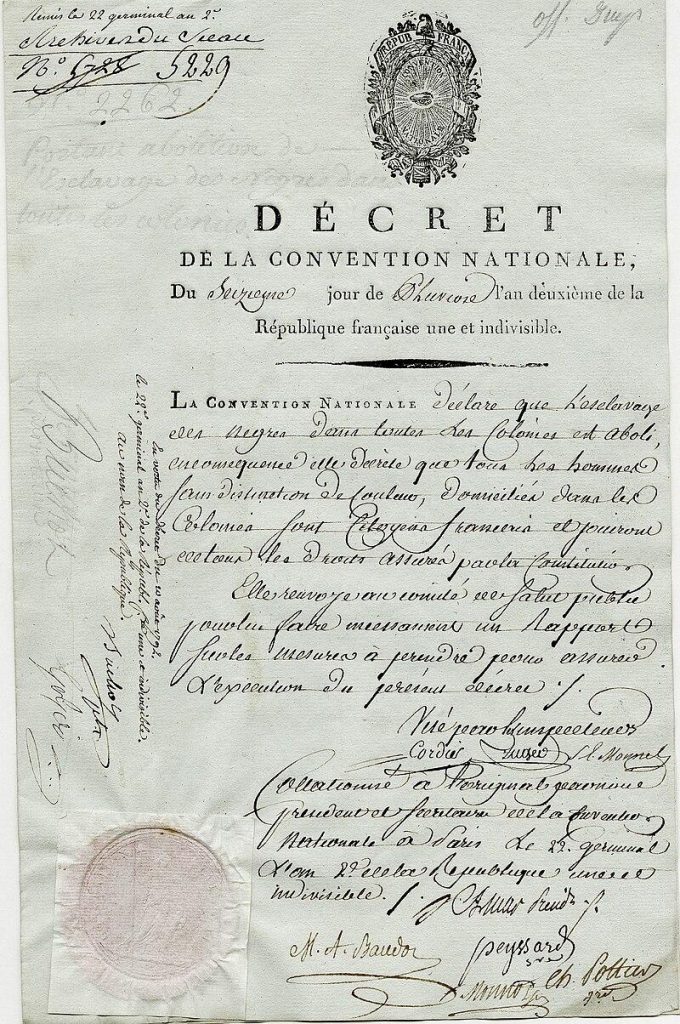 Remis le 22 germinal an 2e.
Archives du Sceau
No. 5728 5229
off.
2262
Portant abolition de
l'Esclavage des Nègres dans
toutes les colonies
RÉPUB FRANÇ
DÉCRET
DE LA CONVENTION NATIONALE,
Du Seizieme jour de Pluviose l'an deuxième de la
République française une et indivisible.
LA CONVENTION NATIONALE déclare que l'esclavage
des negres dans toutes les Colonies est aboli,
en consequence elle décrete que tous les hommes
sans distinction de Couleur, domiciliés dans les
Colonies sont Citoyens francais et jouiront
de tous les Droits assurés par la Constitution
Elle renvoye au comité de Salut public
pour lui faire incessament un Rapport
sur les mesures à prendre pour assurer
l'execution du présent décret ./.
Visé par les inspecteurs
Cordier Auger S. E. Monnel
Collationné à l'original par nous
president et Secrétaires de la Convention
Nationale à Paris le 22 germinal
l'an 2e de la Republique une et
indivisible. ./.
Amar
M. A. Baudot
peyssard
Sre
Monnot Ch. Pottier
Sre
En vertu du décret du 10 août 1792.
le 22e germinal an 2e de la Républ. fse une et indivisible.
au nom de la République.
Buchot
Gohier